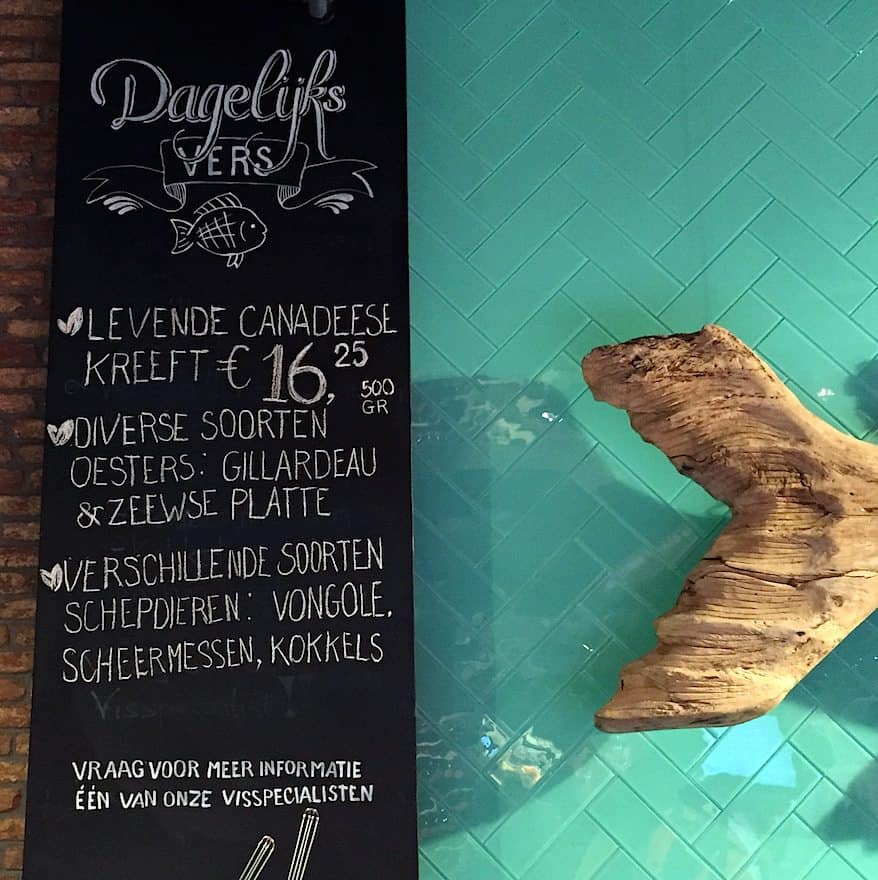 Dagelijks
VERS
LEVENDE CANADEESE
KREEFT € 16,25
500
GR
DIVERSE SOORTEN
OESTERS: GILLARDEAU
& ZEEWSE PLATTE
VERSCHILLENDE SOORTEN
SCHEPDIEREN: VONGOLE,
SCHEERMESSEN, KOKKELS
VRAAG VOOR MEER INFORMATIE
ÉÉN VAN ONZE VISSPECIALISTEN